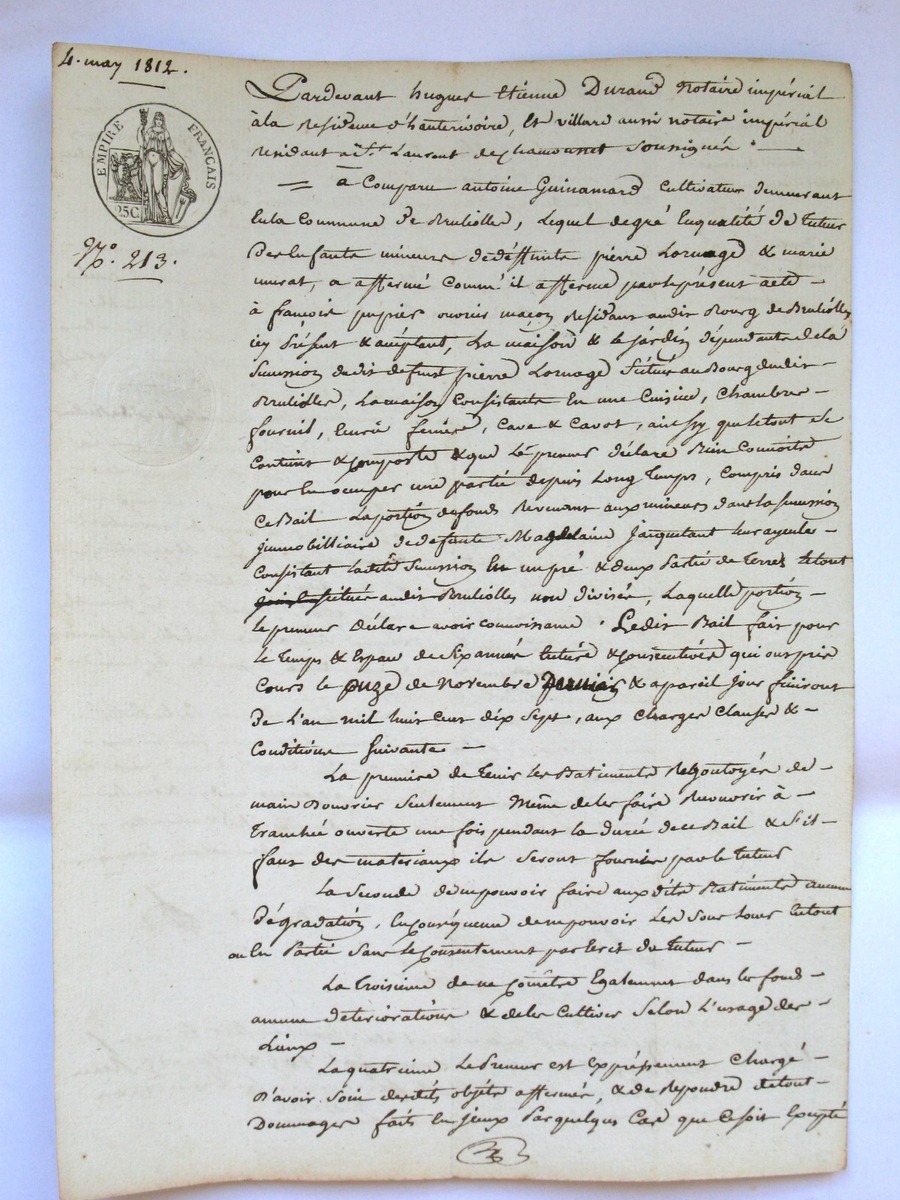 4. may 1812.
EMPIRE FRANÇAIS
25C.
N.º 213.
Pardevant hugues Etienne Durand Notaire impérial
à la Residence d'hauterivoire, Et villard aussi notaire impérial
residant a St. Laurent de Chamousset soussignée
= a Comparu antoine Guinamard Cultivateur demeurant
En la Commune de Brulioles, Lequel de gré En qualité de tuteur
Des Enfants mineurs de défunts pierre Lornage & marie
murat, a affermé comme il afferme par le présent acte
à françois pupier ouvrier maçon Residant audit Bourg de Bruliolles
icy Présent & acéptant, La maison & le jardin dépendants de la
Sucession dudit defunt pierre Lornage Situés au Bourg dudit
Bruliolles, La maison Consistante En une Cuisine, Chambre
fournil, Ecurie feniere, Cave & Cavot, ainsy que le tout se
Contient & comporte & que Le preneur déclare Bien Connoitre
pour En occuper une partie depuis Long Temps, Compris dans
Ce Bail La portion du fonds Revenant aux mineurs dans la sucession
jmmobilliaire de défunte Magdelaine jacquetant leur ayeule
Consistant ladite Sucession En un pré & deux Partie de Terres le tout
situés audit Bruliolles non divisés, Laquelle portion
le preneur déclare avoir connoissance. Ledit Bail fait pour
Le temps & Espace de Six années entiere & consecutives qui ont pris
Cours le onze de novembre dernier & a pareil jour finiront
De L'an mil huit cent dix sept, aux charges clauses &
Conditions Suivantes
La premiere de tenir Les Batiments Regoutoyés de
main D'ouvrier Seulement Même de les faire Recouvrir à
Tranchée ouverte une fois pendant la durée de ce Bail & S'il
faut des materiaux ils Seront fournies par le tuteur
La Seconde de ne pouvoir faire aux dits Batiments aucune
Dégradation, En conséquence de ne pouvoir Les Sous louer le tout
ou En Partie Sans le Consentement par Ecrit du tuteur
La Troisieme de ne cométre Egalement dans les fonds
aucune deteriorations & de les Cultiver Selon L'usage des
Lieux
La quatrieme Le Preneur est Expréssement Chargé
D'avoir Soin desdits objets affermés, & de Repondre de tout
Dommages faits En jeux Par quelques Cas que ce soit Excepté